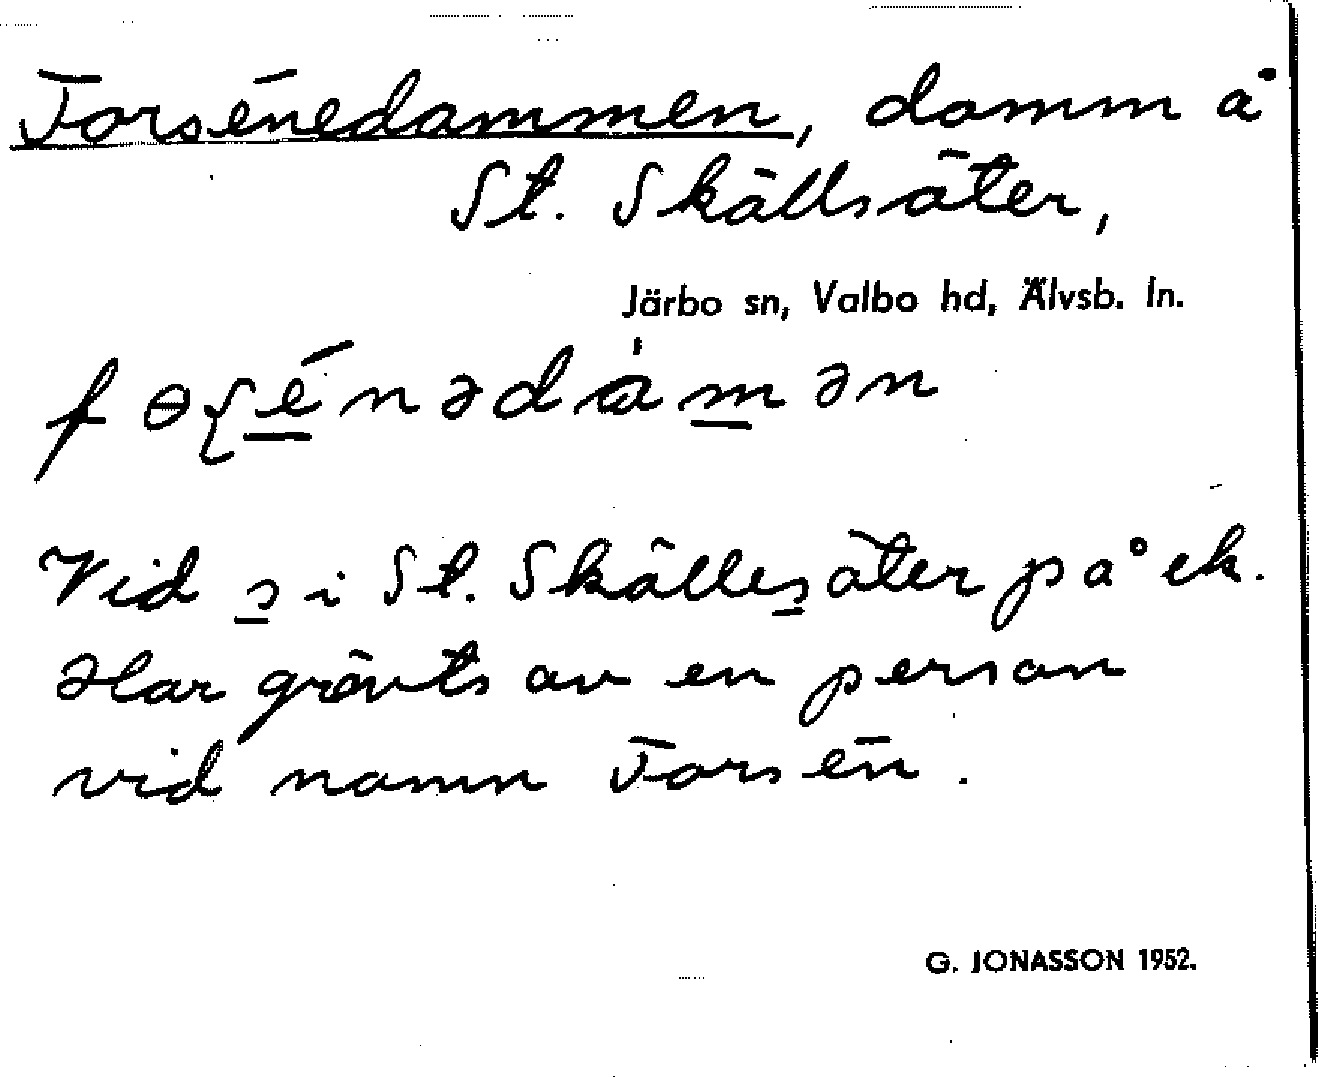 Forsénedammen, damm å
St. Skällsäter,
Järbo sn, Valbo hd, Älvsb. ln.
Vid s i St. Skällesäter på ek.
Har grävts av en person
vid namn Forsén.
G. JONASSON 1952.